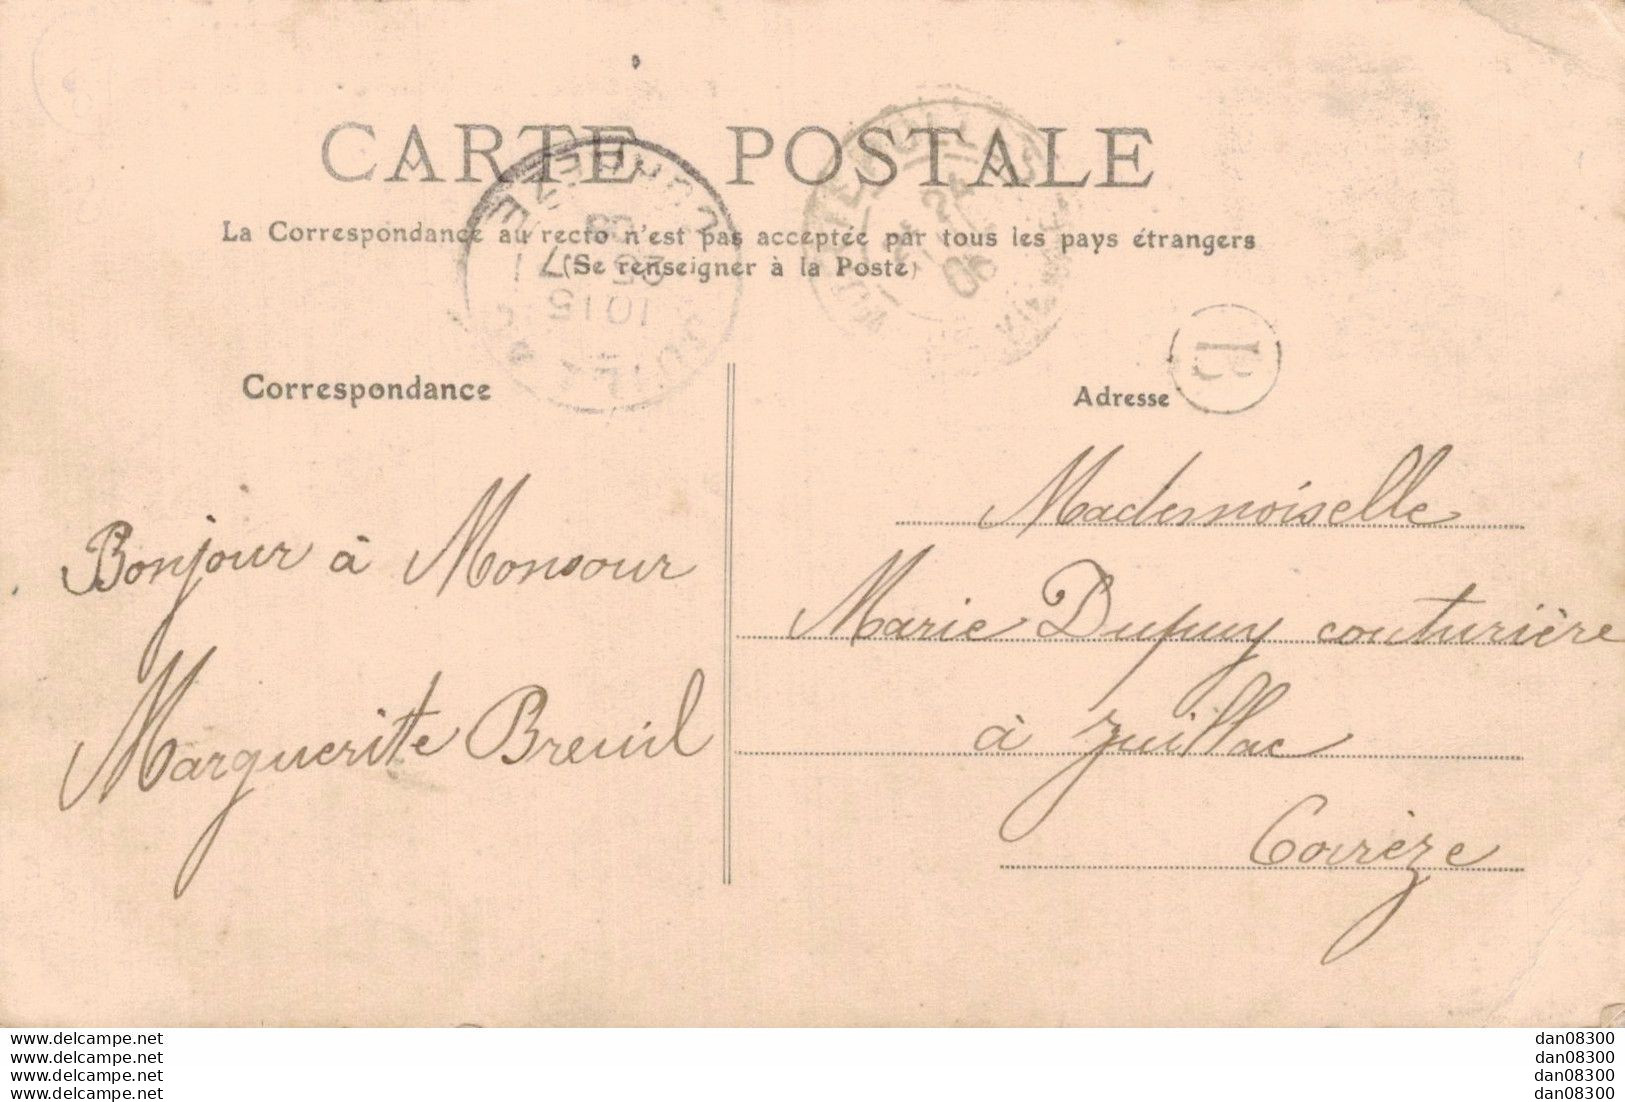 CARTE POSTALE
La Correspondance au recto n'est pas acceptée par tous les pays étrangers
(Se renseigner à la Poste)
CORREZE
10 15
25 7
24
06
B
Correspondance
Adresse
Bonjour à Monsour
Marguerite Breuil
Mademoiselle
Marie Dupuy couturière
à Juillac
Corrèze
www.delcampe.net
www.delcampe.net
www.delcampe.net
www.delcampe.net
dan08300
dan08300
dan08300
dan08300